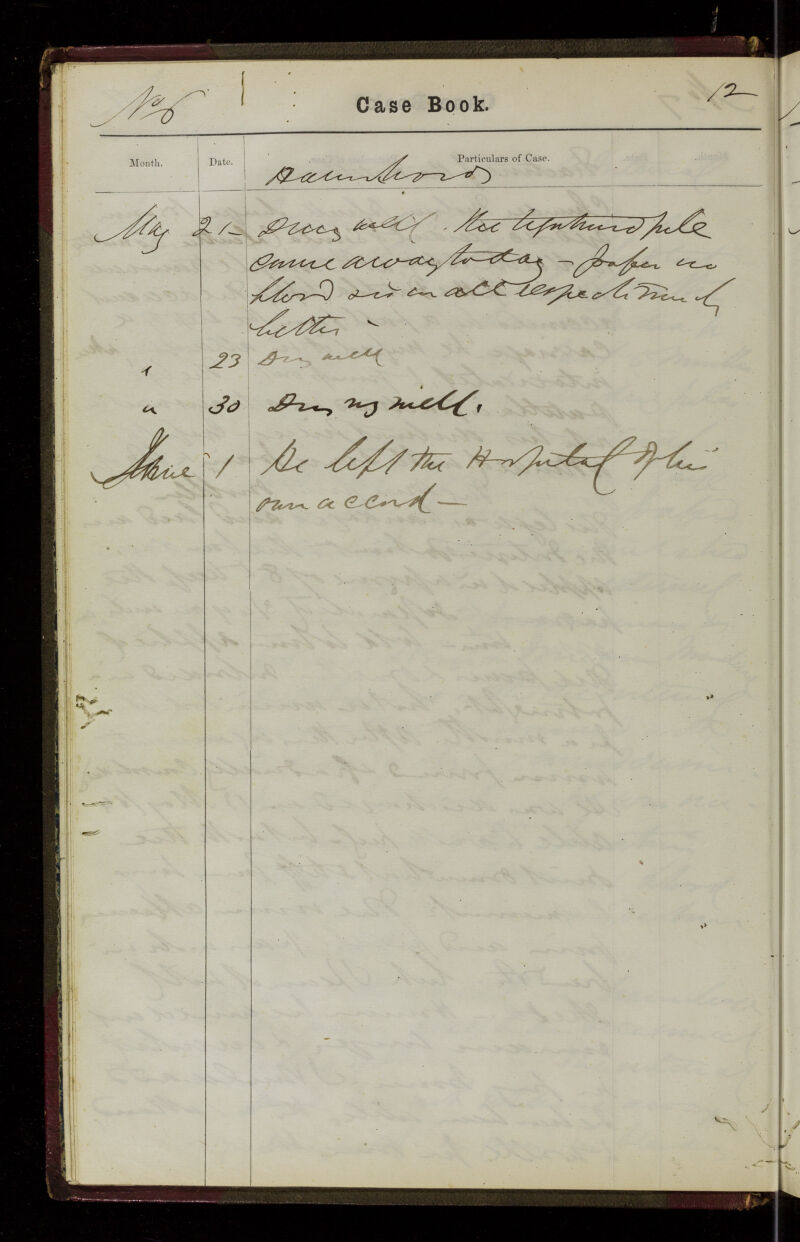 No 6
Case Book.
12
Month. Date. Particulars of Case.
Haemorrhoids
May 21 – Doing well. The ligatured pile
came away today – passes no
blood & is in all respects much
better –
" 23 Doing well
" 30 Doing well.
June 1 He left the Hospital of his
own accord –